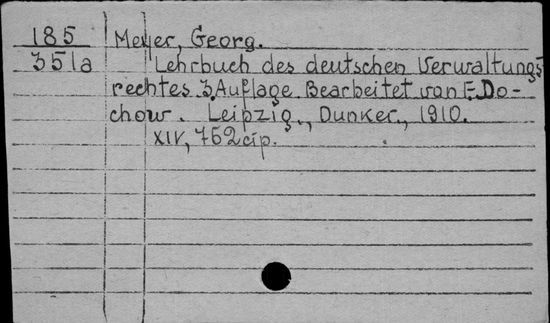 185 Meyer, Georg.
351a Lehrbuch des deutschen Verwaltungs-
rechtes. 3. Auflage. Bearbeitet von F. Do-
chow. Leipzig., Dunker., 1910.
XIV, 762 стр.